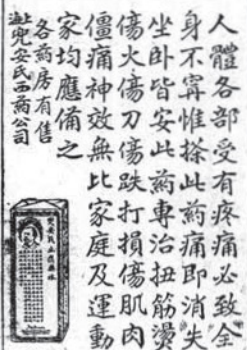 人體各部受有疼痛必致全
身不寗惟搽此葯痛即消失
坐卧皆安此葯專治扭筋燙
傷火傷刀傷跌打損傷肌肉
僵痛神效無比家庭及運動
家均應備之
各葯房有售
上海兜安氏西葯公司